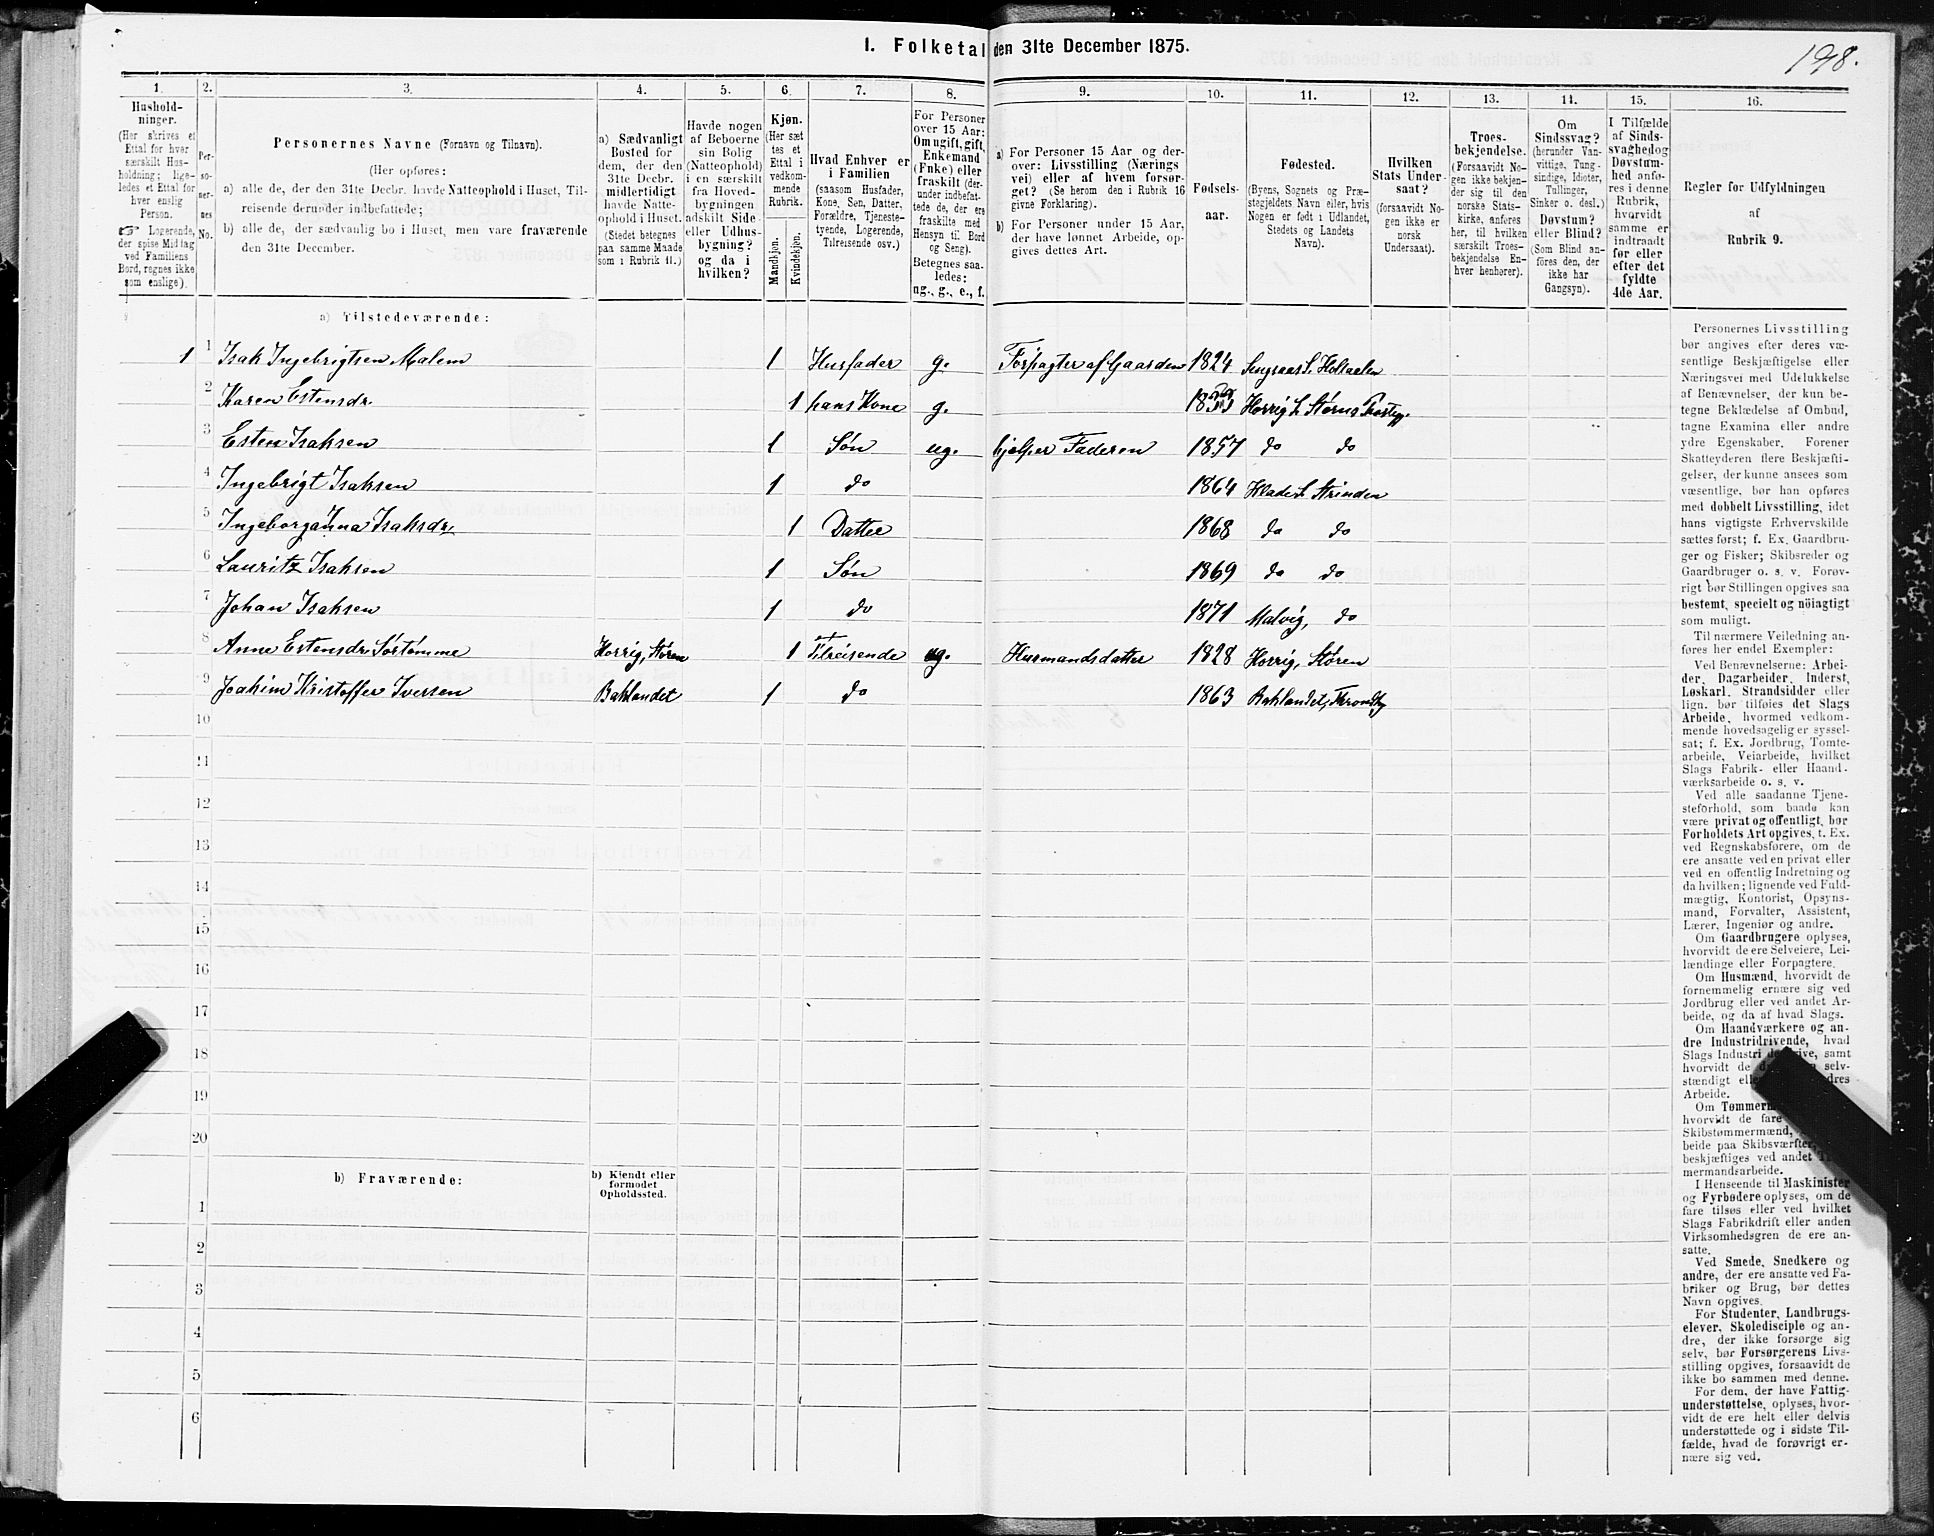 I. Folketal den 31te December 1875.
198.
1.
2.
3.
4.
5.
6.
7.
8.
9.
10.
11.
12.
13.
14.
15.
16.
Hushold-
ninger.
(Her skrives et
Ettal for hver
særskilt Hus-
holdning; lige-
ledes et Ettal for
hver enslig
Person.
☞ Logerende,
der spise Middag
ved Familiens
Bord, regnes ikke
som enslige).
Per-
so-
ner-
nes
No.
Personernes Navne (Fornavn og Tilnavn).
(Her opføres:
a) alle de, der den 31te Decbr. havde Natteophold i Huset, Til-
reisende derunder indbefattede;
b) alle de, der sædvanlig bo i Huset, men vare fraværende
den 31te December.
a) Sædvanligt
Bosted for
dem, der den
31te Decbr.
midlertidigt
havde Natte-
ophold i Huset.
(Stedet betegnes
paa samme Maade
som i Rubrik 11.)
Havde nogen
af Beboerne
sin Bolig
(Natteophold)
i en særskilt
fra Hoved-
bygningen
adskilt Side-
eller Udhus-
bygning?
og da i
hvilken?
Kjøn.
(Her sæt-
tes et
Ettal i
vedkom-
mende
Rubrik.
Mandkjøn.
Kvindekjøn.
Hvad Enhver er
i Familien
(saasom Husfader,
Kone, Søn, Datter,
Forældre, Tjeneste-
tyende, Logerende,
Tilreisende osv.)
For Personer
over 15 Aar:
Om ugift, gift,
Enkemand
(Enke) eller
fraskilt (der-
under indbefat-
tede de, der ere
fraskilte med
Hensyn til Bord
og Seng).
Betegnes saa-
ledes:
ug., g., e., f.
a) For Personer 15 Aar og der-
over: Livsstilling (Nærings-
vei) eller af hvem forsør-
get? (Se herom den i Rubrik 16
givne Forklaring).
b) For Personer under 15 Aar,
der have lønnet Arbeide, op-
gives dettes Art.
Fødsels-
aar.
Fødested.
(Byens, Sognets og Præ-
stegjeldets Navn eller, hvis
Nogen er født i Udlandet,
Stedets og Landets
Navn).
Hvilken
Stats Under-
saat?
(forsaavidt No-
gen ikke er
norsk
Undersaat).
Troes-
bekjendelse.
(Forsaavidt No-
gen ikke bekjen-
der sig til den
norske Stats-
kirke, anføres
her, til hvilken
særskilt Troes-
bekjendelse En-
hver henhører).
Om
Sindssvag?
(herunder Van-
vittige, Tung-
sindige, Idioter,
Tullinger,
Sinker o. desl.)
Døvstum?
eller Blind?
(Som Blind an-
føres den, der
ikke har
Gangsyn).
I Tilfælde
af Sinds-
svaghed og
Døvstum-
hed anfø-
res i denne
Rubrik,
hvorvidt
samme er
indtraadt
før eller
efter det
fyldte
4de Aar.
Regler for Udfyldningen
af
Rubrik 9.
a) Tilstedeværende:
1 1 Isak Ingebrigtsen Malem 1 Husfader g. Forpagter af Gaarden 1824 Singsaas S. Holtaalen
2 Karen Estensdr. 1 hans Kone g. Horrig S. Størens Præstegj.
3 Esten Isaksen 1 Søn ug. hjelper Faderen 1857 do do
4 Ingebrigt Isaksen 1 do 1864 Hlade S. Strinden
5 Ingeborganna Isaksdr. 1 Datter 1868 do do
6 Lauritz Isaksen 1 Søn 1869 do do
7 Johan Isaksen 1 do 1871 Malvig, do
8 Anne Estensdr. Sørtømme Horrig, Støren 1 Tilreisende ug. Husmandsdatter 1828 Horrig, Støren
9 Joakim Kristoffer Iversen Baklandet 1 do 1863 Baklandet, Trondhj
10
11
12
13
14
15
16
17
18
19
20
b) Fraværende:
b) Kjendt eller
formodet
Opholdssted.
1
2
3
4
5
6
Personernes Livsstilling
bør angives efter deres væ-
sentlige Beskjæftigelse eller
Næringsvei med Udelukkelse
af Benævnelser, der kun be-
tegne Beklædelse af Ombud,
tagne Examina eller andre
ydre Egenskaber. Forener
Skatteyderen flere Beskjæfti-
gelser, der kunne ansees som
væsentlige, bør han opføres
med dobbelt Livsstilling, idet
hans vigtigste Erhvervskilde
sættes først; f. Ex. Gaardbru-
ger og Fisker; Skibsreder og
Gaardbruger o. s. v. Forøv-
rigt bør Stillingen opgives saa
bestemt, specielt og nöiagtigt
som muligt.
Til nærmere Veiledning an-
føres her endel Exempler:
Ved Benævnelserne: Arbei-
der, Dagarbeider, Inderst,
Løskarl, Strandsidder eller
lign. bør tilføies det Slags
Arbeide, hvormed vedkom-
mende hovedsagelig er syssel-
sat; f. Ex. Jordbrug, Tomte-
arbeide, Veiarbeide, hvilket
Slags Fabrik- eller Haand-
værksarbeide o. s. v.
Ved alle saadanne Tjene-
steforhold, som baade kan
være privat og offentligt, bør
Forholdets Art opgives, t. Ex.
ved Regnskabsførere, om de
ere ansatte ved en privat eller
ved en offentlig Indretning og
da hvilken; lignende ved Fuld-
mægtig, Kontorist, Opsyns-
mand, Forvalter, Assistent,
Lærer, Ingeniør og andre.
Om Gaardbrugere oplyses,
hvorvidt de ere Selveiere, Lei-
lændinge eller Forpagtere.
Om Husmænd, hvorvidt de
fornemmelig ernære sig ved
Jordbrug eller ved andet Ar-
beide, og da af hvad Slags.
Om Haandværkere og an-
dre Industridrivende, hvad
Slags Industri de drive, samt
hvorvidt de selv-
stændigt
Arbeide.
Om
hvorvidt de fare
Skibstømmermænd,
beide paa Skibsværfter,
beskjæftiges ved andet
mermandsarbeide.
I Henseende til Maskinister
og Fyrbødere oplyses, om de
fare tilsøs eller ved hvilket
Slags Fabrikdrift eller anden
Virksomhedsgren de ere an-
satte.
Ved Smede, Snedkere og
andre, der ere ansatte ved Fa-
briker og Brug, bør dettes
Navn opgives.
For Studenter, Landbrugs-
elever, Skoledisciple og an-
dre, der ikke forsørge sig
selv, bør Forsørgerens Livs-
stilling opgives, forsaavidt de
ikke bo sammen med denne.
For dem, der have Fattig-
understøttelse, oplyses, hvor-
vidt de ere helt eller delvis
understøttede og i sidste Til-
fælde, hvad de forøvrigt er-
nære sig ved.